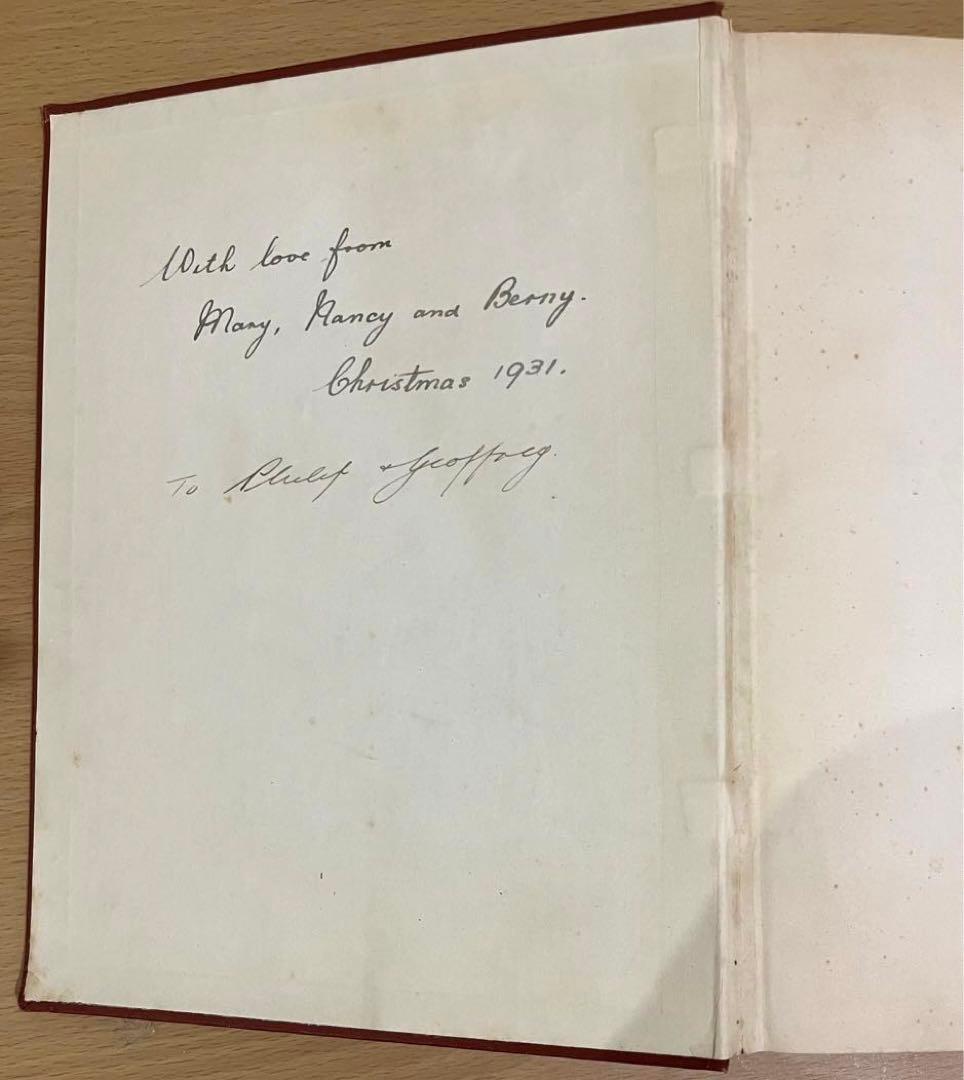 With love from
Mary, Nancy and Berny.
Christmas 1931.
To Philip & Geoffrey.